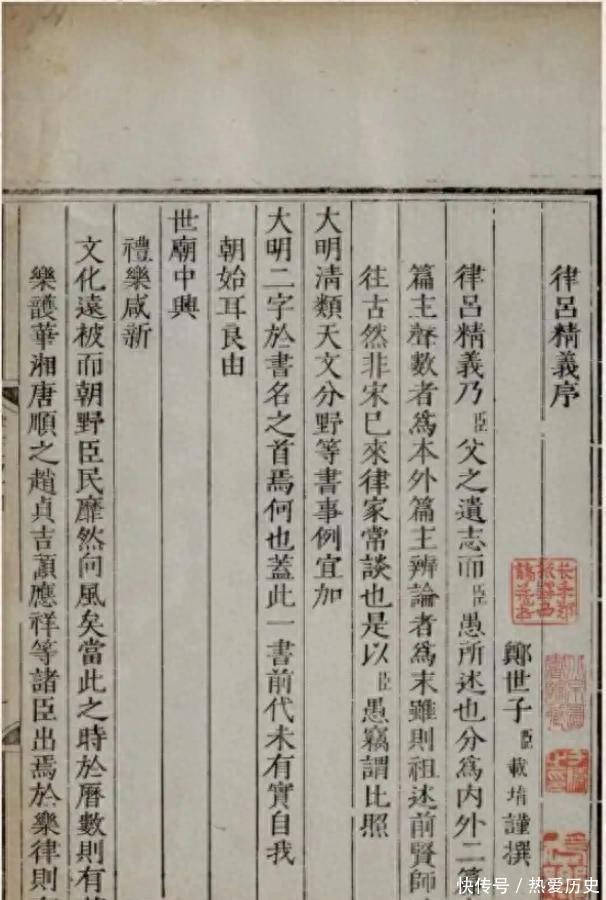 律呂精義序
鄭世子臣載堉謹撰
律呂精義乃臣父之遺志而臣愚所述也分爲内外二篇
篇主聲數者爲本外篇主辨論者爲末雖則祖述前賢師
往古然非宋已來律家常談也是以臣愚竊謂比照
大明清類天文分野等書事例宜加
大明二字於書名之首焉何也蓋此一書前代未有實自我
朝始耳良由
世廟中興
禮樂咸新
文化遠被而朝野臣民靡然向風矣當此之時於曆數則有
樂頀華湘唐順之趙貞吉顧應祥等諸臣出焉於樂律則
快传号/热爱历史